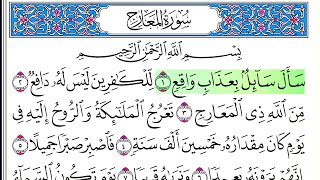 سُورَةُ المَعَارِجِ
بِسْمِ ٱللَّهِ ٱلرَّحْمَٰنِ ٱلرَّحِيمِ
سَأَلَ سَآئِلُۢ بِعَذَابٖ وَاقِعٖ ١ لِّلۡكَٰفِرِينَ لَيۡسَ لَهُۥ دَافِعٞ ٢
مِّنَ ٱللَّهِ ذِي ٱلۡمَعَارِجِ ٣ تَعۡرُجُ ٱلۡمَلَٰٓئِكَةُ وَٱلرُّوحُ إِلَيۡهِ فِي
يَوۡمٖ كَانَ مِقۡدَارُهُۥ خَمۡسِينَ أَلۡفَ سَنَةٖ ٤ فَٱصۡبِرۡ صَبۡرٗا جَمِيلًا ٥
إِنَّهُمۡ يَرَوۡنَهُۥ بَعِيدٗا ٦ وَنَرَىٰهُ قَرِيبٗا ٧ يَوۡمَ تَكُونُ ٱلسَّمَآءُ